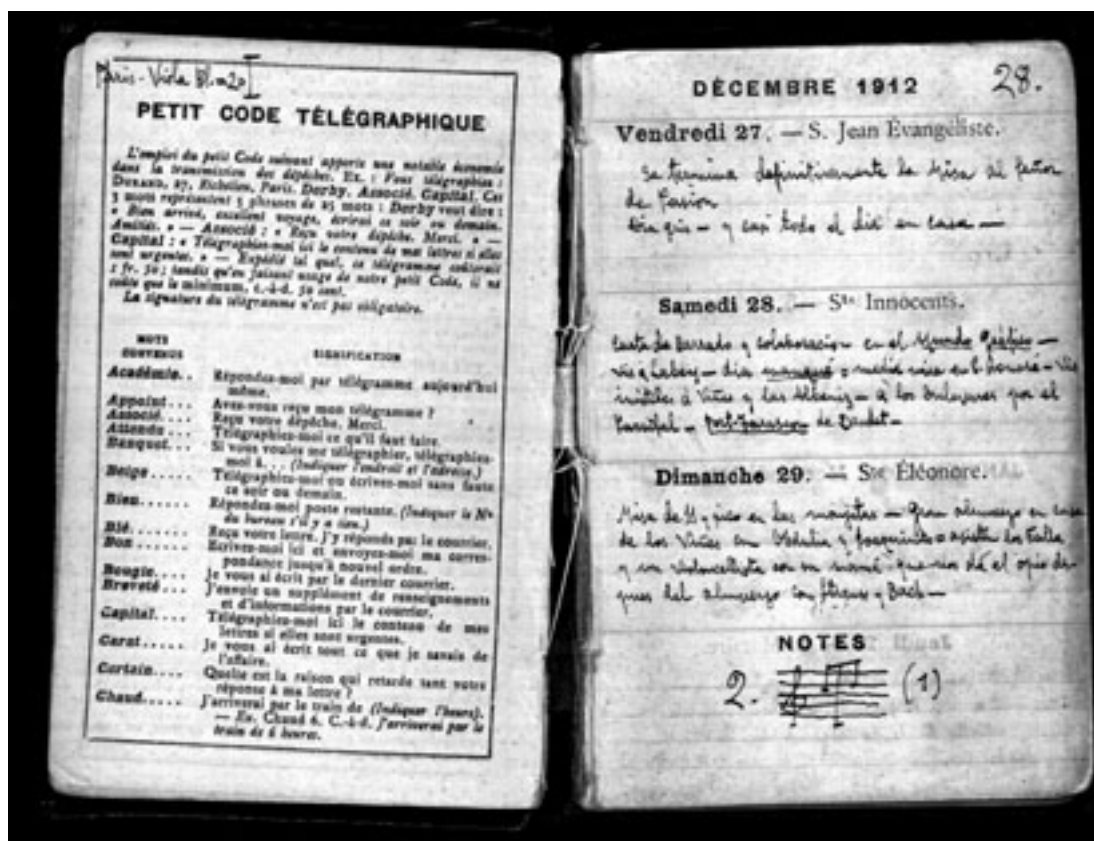 Paris - Viola
PETIT CODE TÉLÉGRAPHIQUE
L'emploi du petit Code suivant apporte une notable économie
dans la transmission des dépêches. Ex. : Vous télégraphiez :
DURAND, 27, Richelieu, Paris. Derby. Associé. Capital. Ces
3 mots représentent 3 phrases de 25 mots : Derby veut dire :
« Bien arrivé, excellent voyage, écrirai ce soir ou demain.
Amitiés. » — Associé : « Reçu votre dépêche. Merci. » —
Capital : « Télégraphiez-moi ici le contenu de mes lettres si elles
sont urgentes. » — Expédié tel quel, ce télégramme coûterait
1 fr. 50 ; tandis qu'en faisant usage de notre petit Code, il ne
coûte que le minimum, c.-à-d. 50 cent.
La signature du télégramme n'est pas obligatoire.
MOTS
CONVENUS SIGNIFICATION
Académie.. Répondez-moi par télégramme aujourd'hui
même.
Appoint... Avez-vous reçu mon télégramme ?
Associé... Reçu votre dépêche. Merci.
Attendu... Télégraphiez-moi ce qu'il faut faire.
Banquet... Si vous voulez me télégraphier, télégraphiez-
moi à... (Indiquer l'endroit et l'adresse.)
Beige..... Télégraphiez-moi ou écrivez-moi sans faute
ce soir ou demain.
Bien...... Répondez-moi poste restante. (Indiquer le No
du bureau s'il y a lieu.)
Blé....... Reçu votre lettre. J'y réponds par le courrier.
Bon....... Écrivez-moi ici et envoyez-moi ma corres-
pondance jusqu'à nouvel ordre.
Bougie.... Je vous ai écrit par le dernier courrier.
Breveté... J'envoie un supplément de renseignements
et d'informations par le courrier.
Capital.... Télégraphiez-moi ici le contenu de mes
lettres si elles sont urgentes.
Carat..... Je vous ai écrit tout ce que je savais de
l'affaire.
Certain.... Quelle est la raison qui retarde tant votre
réponse à ma lettre ?
Chaud..... J'arriverai par le train de (Indiquer l'heure).
— Ex. Chaud 6. C.-à-d. J'arriverai par le
train de 6 heures.
28.
DÉCEMBRE 1912
Vendredi 27. — S. Jean Évangéliste.
Se termina definitivamente la Misa al Señor
de Pasion
dia gris — y casi todo el dia en casa —
Samedi 28. — Sts Innocents.
Carta de Serrado y colaboracion en el Mundo Gráfico —
dia manqué
inútiles á Viñes y las Albeniz — á los por el
Parsifal — de
Dimanche 29. — Ste Éléonore.
Misa de 11 y pico en las monjitas — Gran almuerzo en casa
de los Viñes con Obdulia y Joaquinito — asisten los Falla
y un violoncellista con su mamá que nos dá el opio des-
pues del almuerzo con y Bach —
NOTES
2. (1)